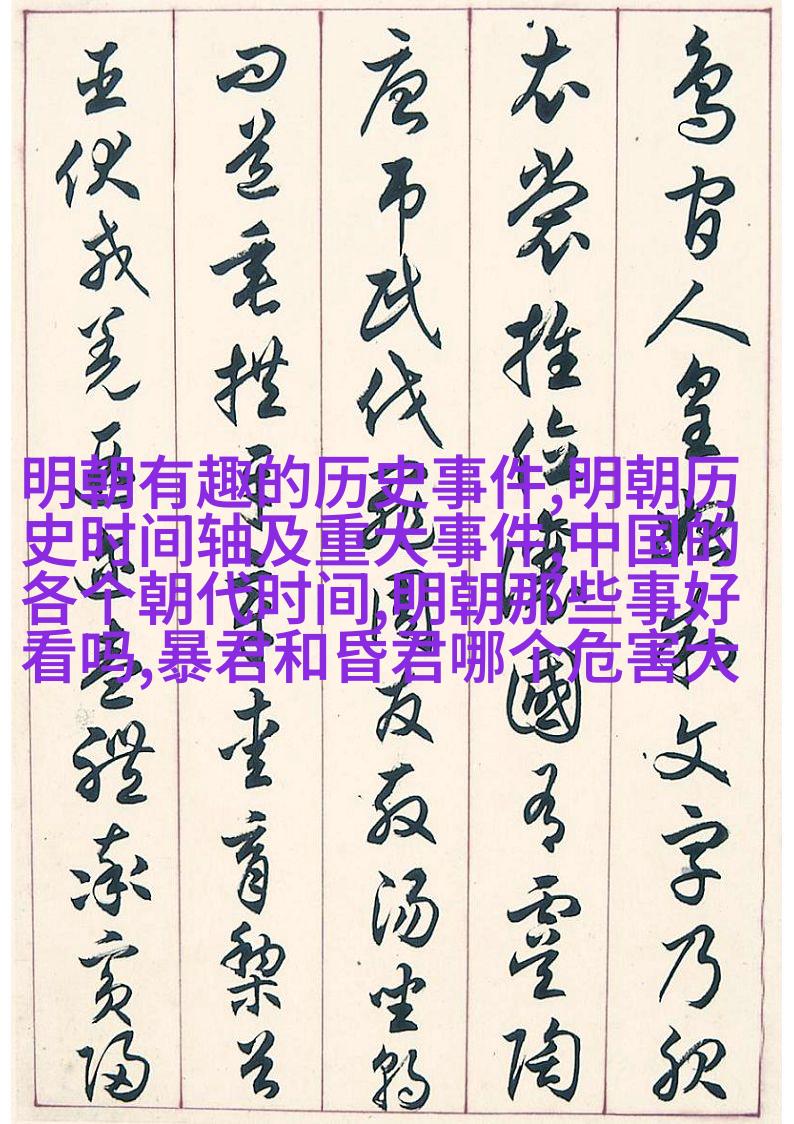 鳥官人皇始制文字乃服
衣裳推位讓國有虞陶
唐弔民伐罪周發殷湯坐朝
問道垂拱平章愛育黎首
臣伏戎羌遐邇壹體率賓歸
明朝有趣的历史事件,明朝历
史时间轴及重大事件,中国的
各个朝代时间,明朝那些事好
看吗,暴君和昏君哪个危害大